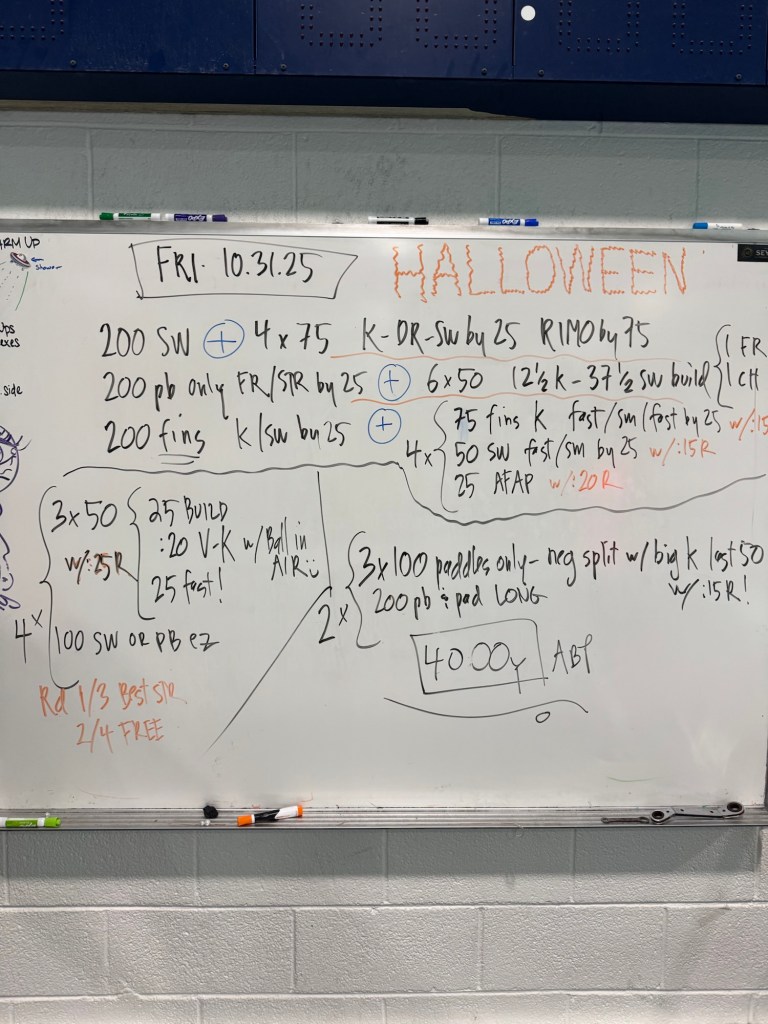 ARM UP
Shower
ups
exes
side
FRI. 10.31.25
HALLOWEEN
200 SW + 4 x 75 K-DR-SW by 25 RIMO by 75
200 pb only FR/STR by 25 + 6x50 12½ k - 37½ SW build { 1 FR
1 CH
200 fins K/SW by 25 +
4x { 75 fins K fast/sm/fast by 25 w/:15
50 SW fast/sm by 25 w/:15R
25 AFAP w/:20R
4x { 3x50 { 25 BUILD
w/:25R :20 V-K w/ Ball in AIR
25 fast!
100 SW OR PB EZ
Rd 1/3 Best STR
2/4 FREE
2x { 3x100 paddles only - neg split w/ big k last 50
w/:15R!
200 pb & pad LONG
4000y ABP
SEY